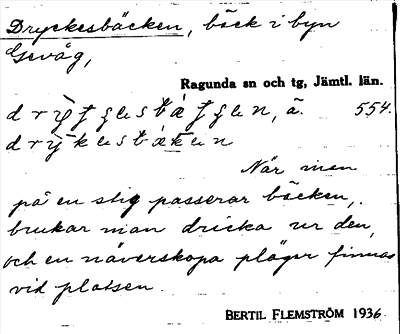 Dryckesbäcken, bäck i byn
Gevåg,
Ragunda sn och tg, Jämtl. län.
554.
När man
på en stig passerar bäcken,
brukar man dricka ur den,
och en näverskopa pläger finnas
vid platsen.
BERTIL FLEMSTRÖM 1936